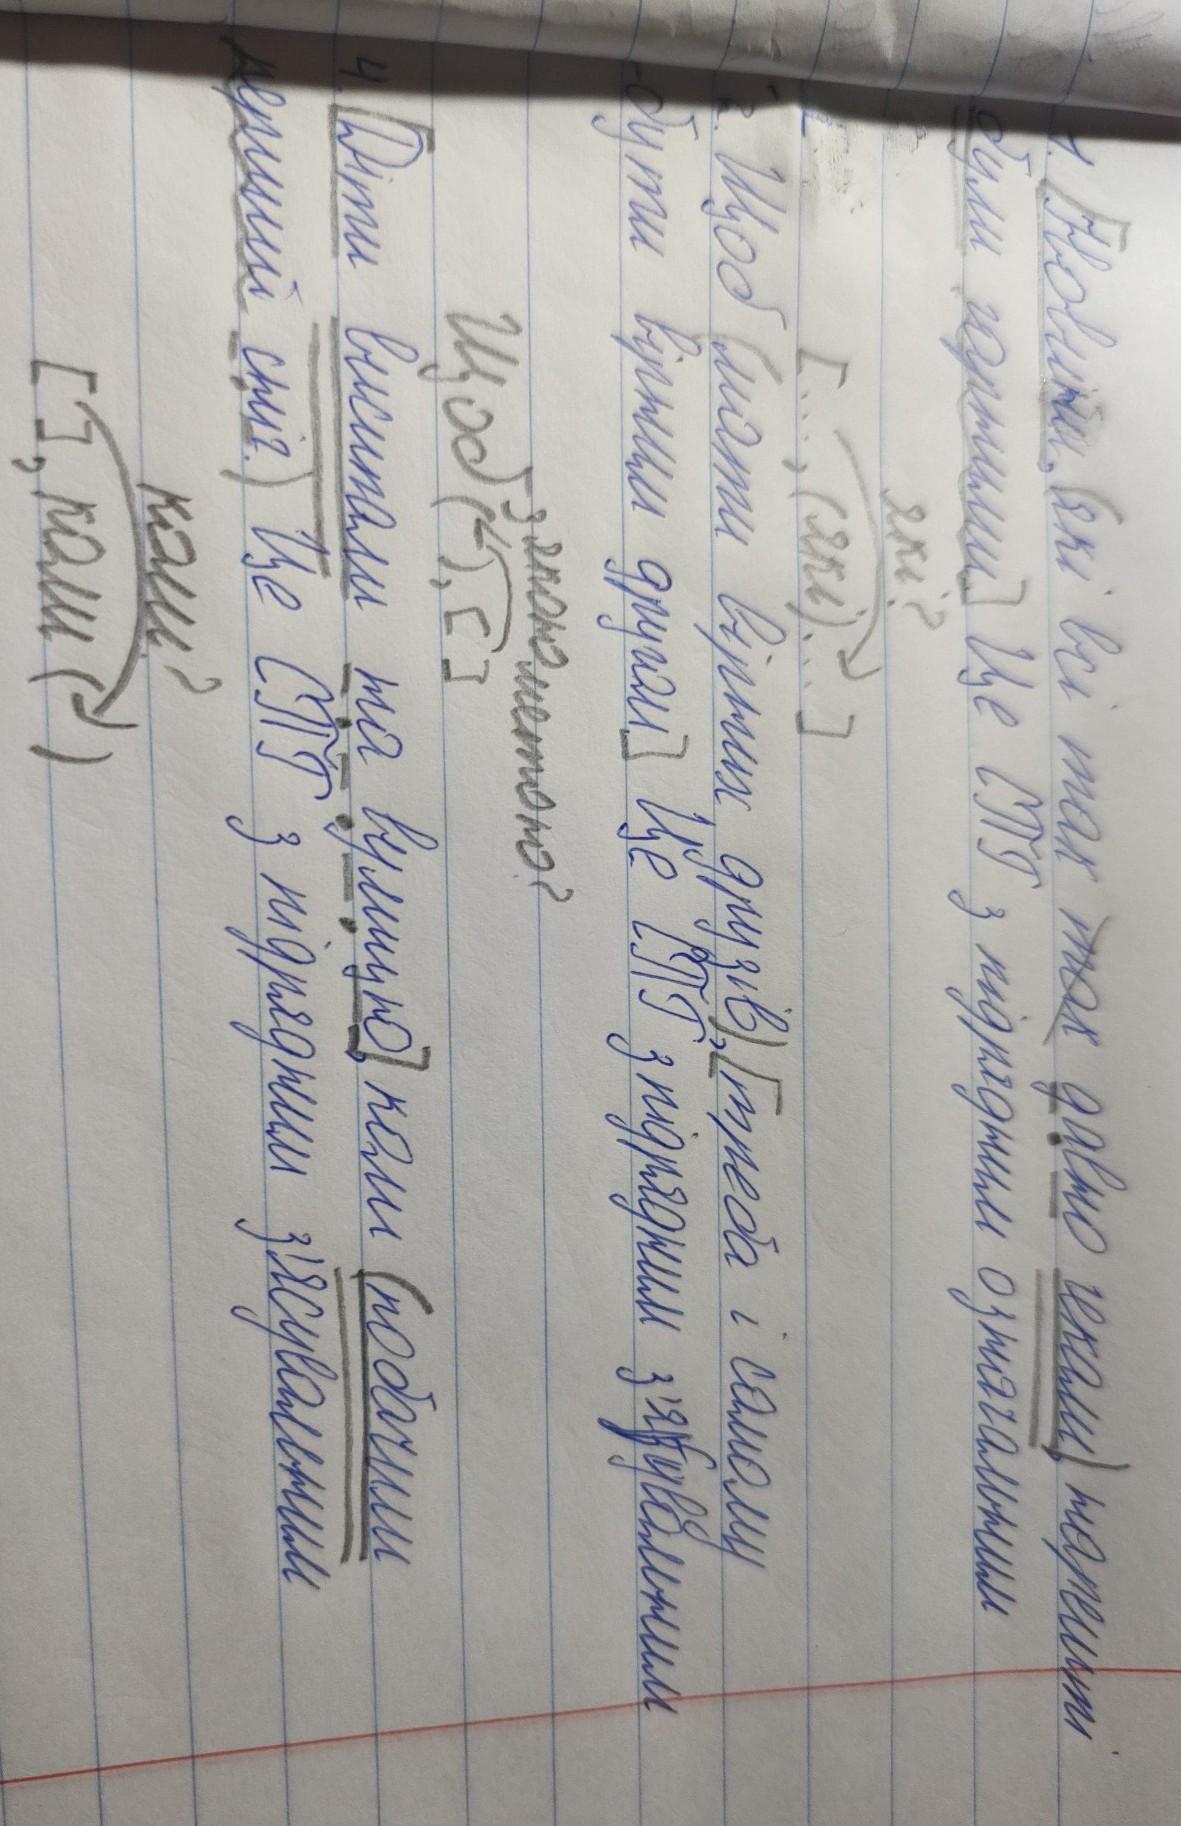 1. [Новини, (які всі так так давно чекали) нарешті
були гарними] Це СПР з підрядним означальним
які?
[..., (які)...]
2. Щоб (мати вірних друзів), [треба і самому
бути вірним другом] Це СПР з підрядним
з якою метою?
Щоб (-), [ ]
4. [Діти висипали на вулицю], коли (побачили
перший сніг.) Це СПР з підрядним з'ясувальним
коли?
[ ], коли ( )